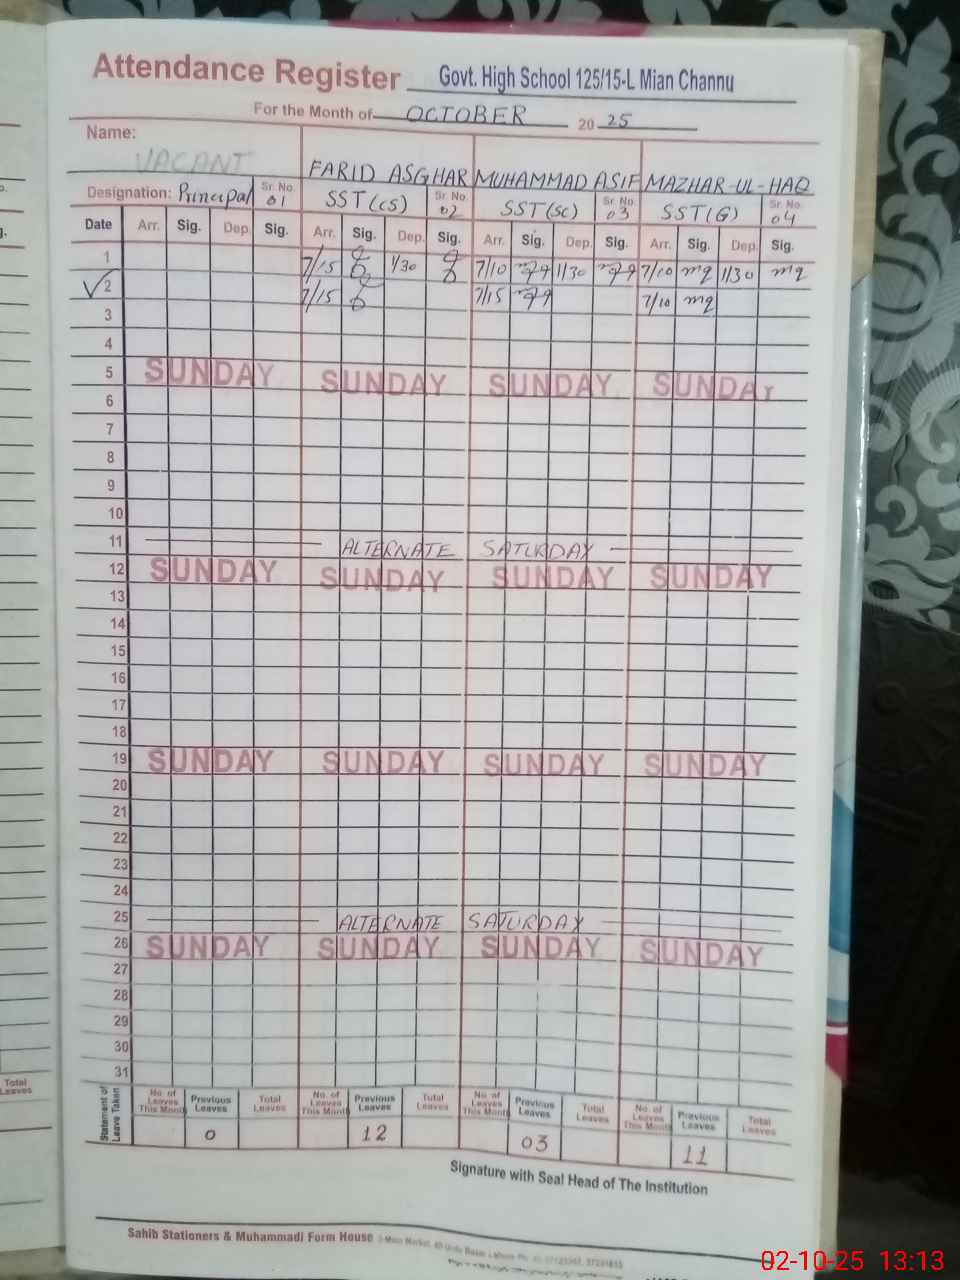 Attendance Register Govt. High School 125/15-L Mian Channu
For the Month of OCTOBER 20 25
Name: VACANT FARID ASGHAR MUHAMMAD ASIF MAZHAR-UL-HAQ
Designation: Principal Sr. No. 01 SST(CS) Sr. No. 02 SST(SC) Sr. No. 03 SST(G) Sr. No. 04
Date Arr. Sig. Dep. Sig. Arr. Sig. Dep. Sig. Arr. Sig. Dep. Sig. Arr. Sig. Dep. Sig.
1 7/15 1/30 7/10 1/30 7/10 mq 1/30 mq
2 7/15 7/15 7/10 mq
3
4
5 SUNDAY SUNDAY SUNDAY SUNDAY
6
7
8
9
10
11 ALTERNATE SATURDAY
12 SUNDAY SUNDAY SUNDAY SUNDAY
13
14
15
16
17
18
19 SUNDAY SUNDAY SUNDAY SUNDAY
20
21
22
23
24
25 ALTERNATE SATURDAY
26 SUNDAY SUNDAY SUNDAY SUNDAY
27
28
29
30
31
Statement of Leave Taken No. of Leaves This Month Previous Leaves Total Leaves No. of Leaves This Month Previous Leaves Total Leaves No. of Leaves This Month Previous Leaves Total Leaves No. of Leaves This Month Previous Leaves Total Leaves
0 12 03 11
Signature with Seal Head of The Institution
Sahib Stationers & Muhammadi Form House
Total Leaves
02-10-25 13:13